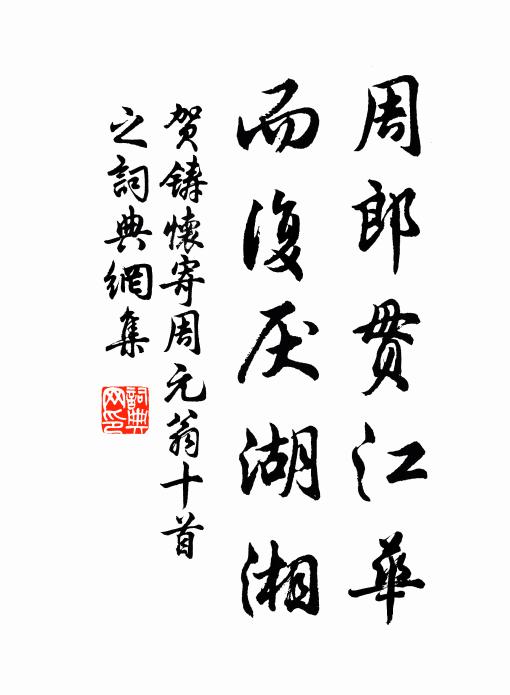 周郎贯江華
而復厌湖湘
贺鑄懷寄周元翁十首
之詞典網集
詞典
网印